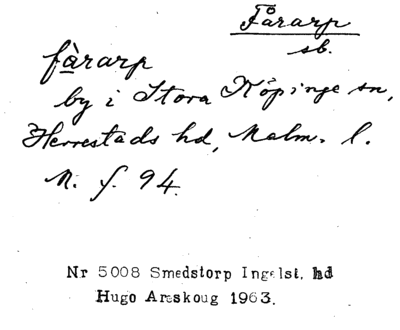 Fårarp
sb.
fàrarp
by i Stora Köpinge sn,
Herrestads hd, Malm. l.
M. f. 94.
Nr 5008 Smedstorp Ingelst. hd
Hugo Areskoug 1963.